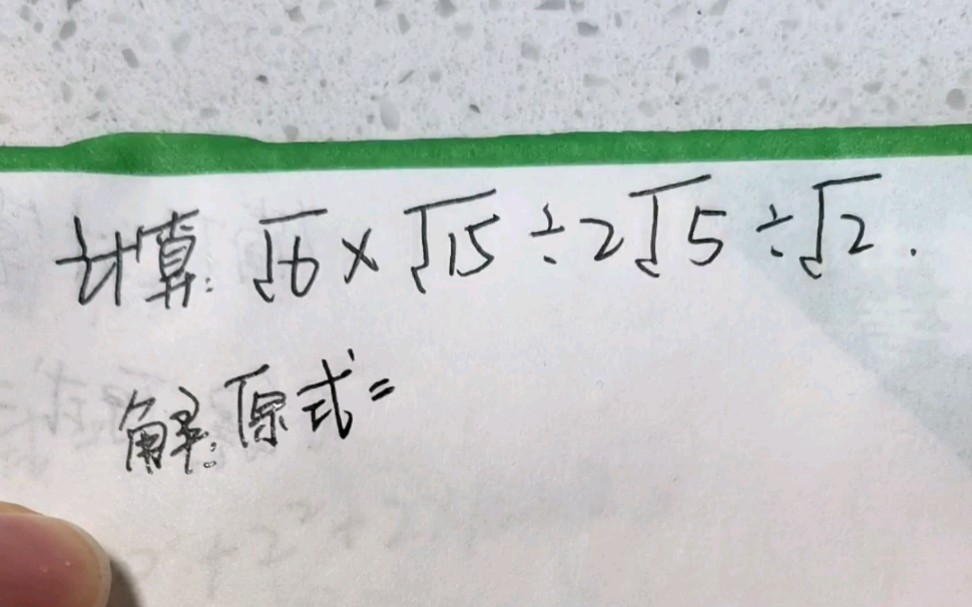 计算: √6 × √15 ÷ 2√5 ÷ √2.
解: 原式 =